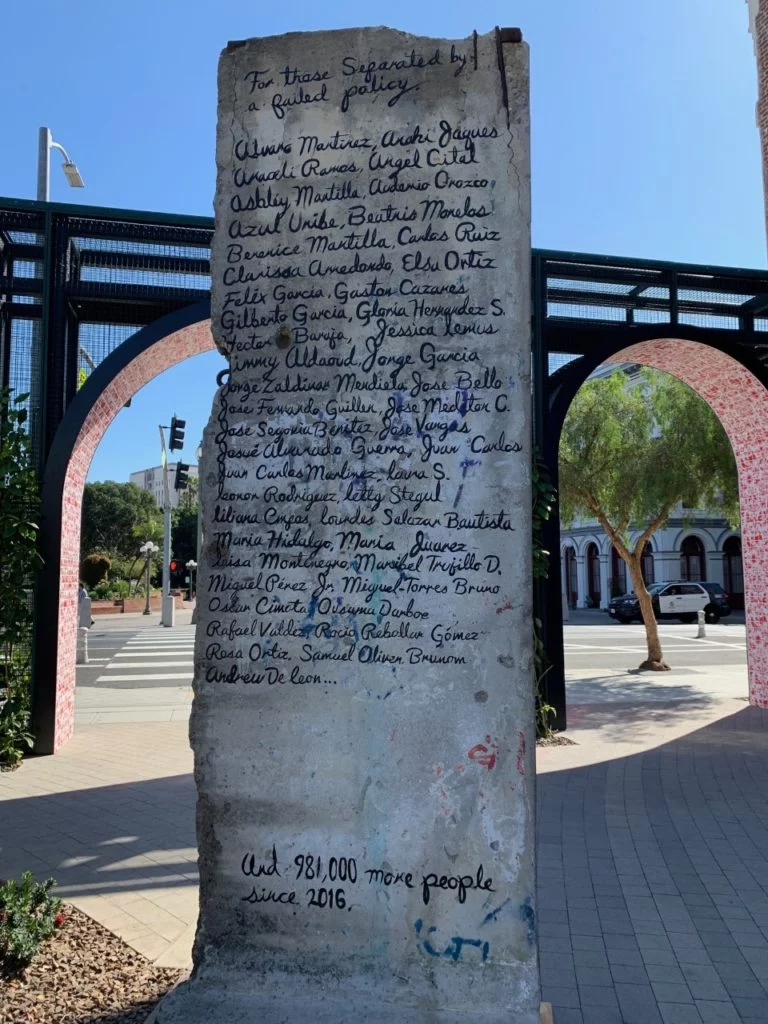 For those Separated by
a failed policy.
Alvaro Martinez, Araki Jaques
Araceli Ramos, Angel Cital
Ashley Mantilla, Audenio Orozco,
Azul Uribe, Beatris Morelos
Berenice Mantilla, Carlos Ruiz
Clarissa Arredondo, Elsa Ortiz
Felix Garcia, Gaston Cazares
Gilberto Garcia, Gloria Hernandez S.
Hector Barajas, Jessica Lemus
Jimmy Aldaoud, Jorge Garcia
Jorge Zaldivar Mendieta, Jose Bello
Jose Fernando Guillen, Jose Medeton C.
José Segovia Benitez, Jose Vargas
Josué Alvarado Guerra, Juan Carlos
Juan Carlos Martinez, Laura S.
Leonor Rodriguez, Letty Stegul
Liliana Cmpos, Lourdes Salazar Bautista
Maria Hidalgo, Maria Juarez
Luisa Montenegro, Maribel Trujillo D.
Miguel Pérez Jr. Miguel-Torres Bruno
Oscar Cimeta, Ousuma Darboe
Rafael Valdez, Rocio Rebollar Gómez
Rosa Ortiz, Samuel Oliver Brunom
Andreu De leon...
And 981,000 more people
since 2016.